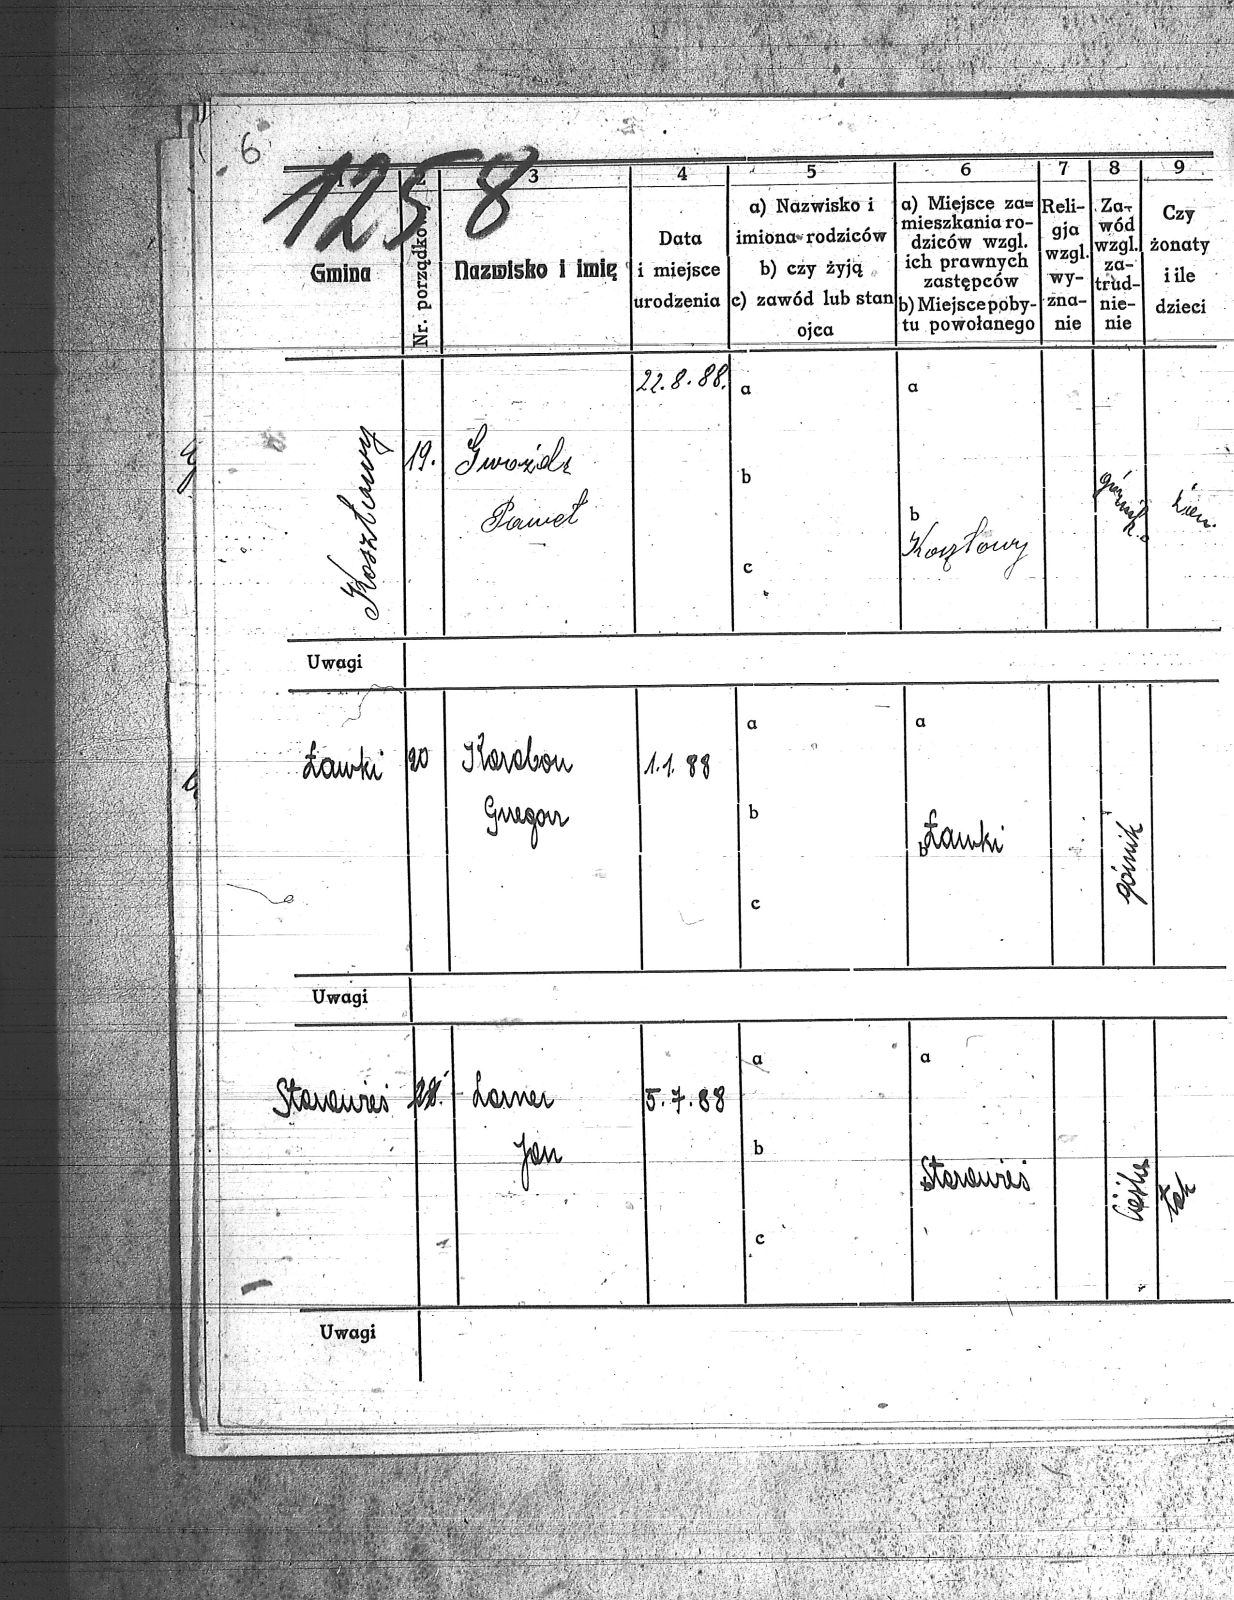 6
1258
1 2 3 4 5 6 7 8 9
Gmina
Nr. porządkow.
Nazwisko i imię
Data
i miejsce
urodzenia
a) Nazwisko i
imiona rodziców
b) czy żyją
c) zawód lub stan
ojca
a) Miejsce za=
mieszkania ro-
dziców wzgl.
ich prawnych
zastępców
b) Miejsce poby-
tu powołanego
Reli-
gja
wzgl.
wy-
zna-
nie
Za-
wód
wzgl.
za-
trud-
nie-
nie
Czy
żonaty
i ile
dzieci
Kosztowy
19.
Gwoźdz
Paweł
22.8.88.
a
b
c
a
b
Kosztowy
górnik.
żon.
Uwagi
Ławki
20
Karabon
Gregor
1.1.88
a
b
c
a
b
Ławki
górnik
Uwagi
Starawieś
Larner
Jan
5.7.88
a
b
c
a
b
Starawieś
Cieśla
tak
Uwagi